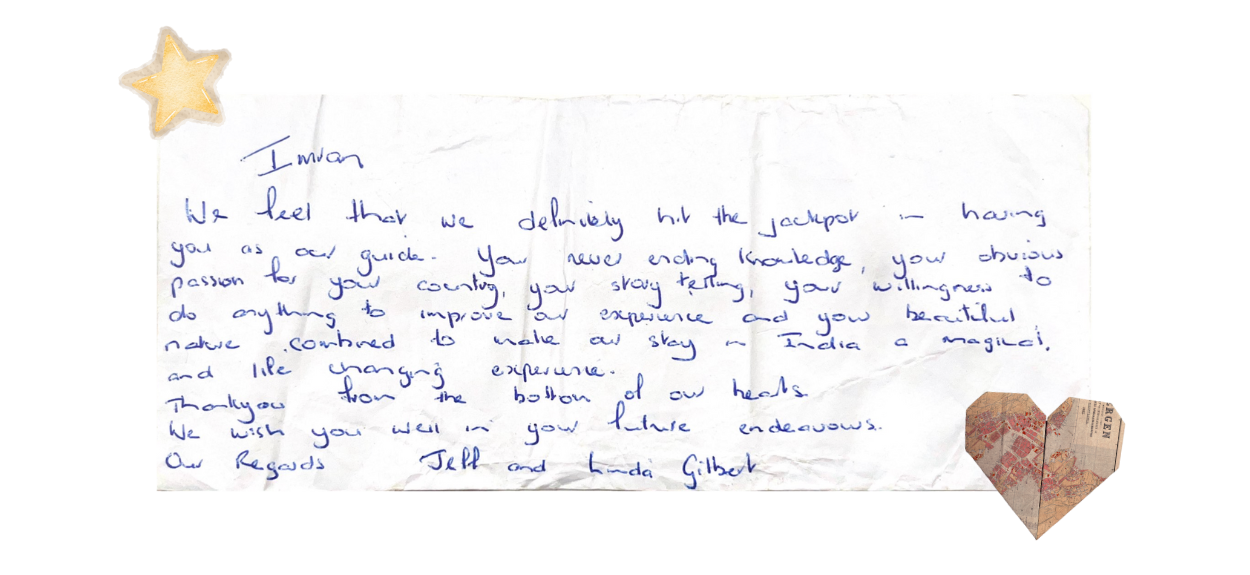 Imran
We feel that we definitely hit the jackpot in having
you as our guide. Your never ending knowledge, your obvious
passion for your country, your story telling, your willingness to
do anything to improve our experience and your beautiful
nature combined to make our stay in India a magical,
and life changing experience.
Thankyou from the bottom of our hearts.
We wish you well in your future endeavours.
Our Regards Jeff and Linda Gilbert
RGEN